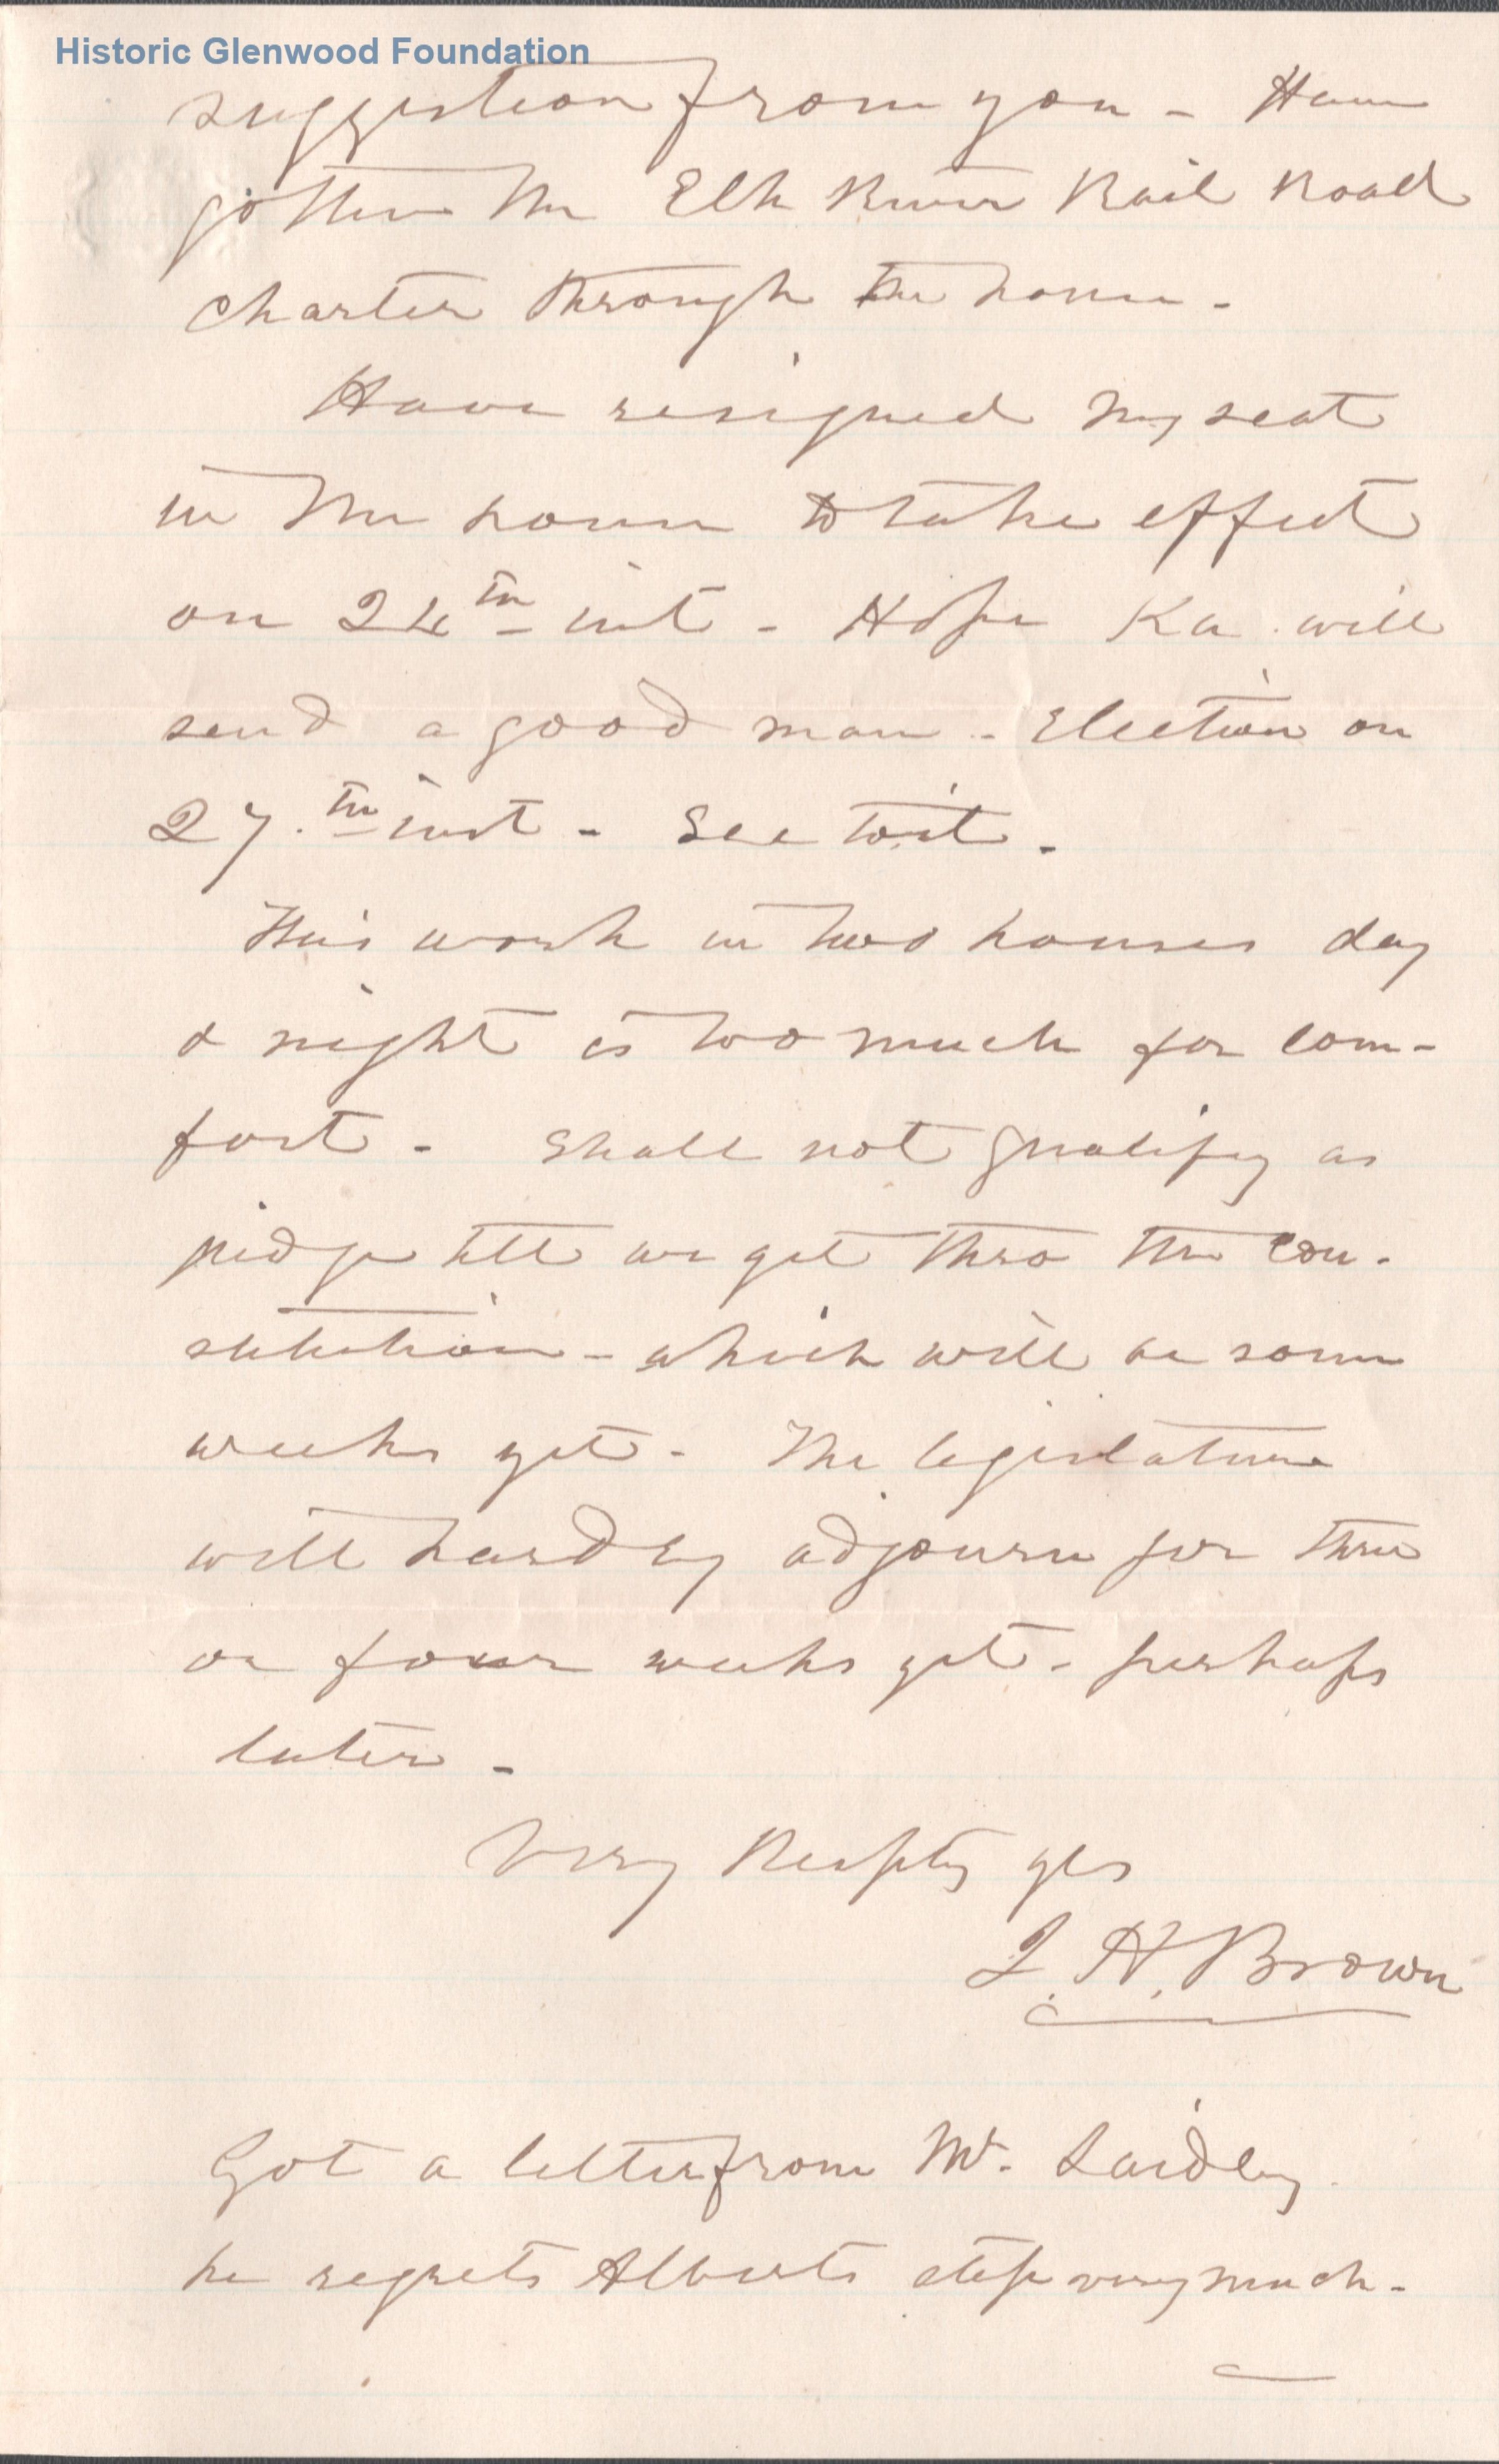 Historic Glenwood Foundation
suggestion from you - Have
gotten the Elk River Rail Road
charter through the house -
Have resigned my seat
in the house to take effect
on 24th inst - Hope Ka will
send a good man - Election on
27th inst - See writ -
This work in two houses day
& night is too much for com-
fort - Shall not qualify as
judge till we get thro the con-
stitution - which will be some
weeks yet - The legislature
will hardly adjourn for three
or four weeks yet - perhaps
later -
Very Respty yrs
J. H. Brown
Got a letter from Mr. Laidley
he regrets Alberts step very much -